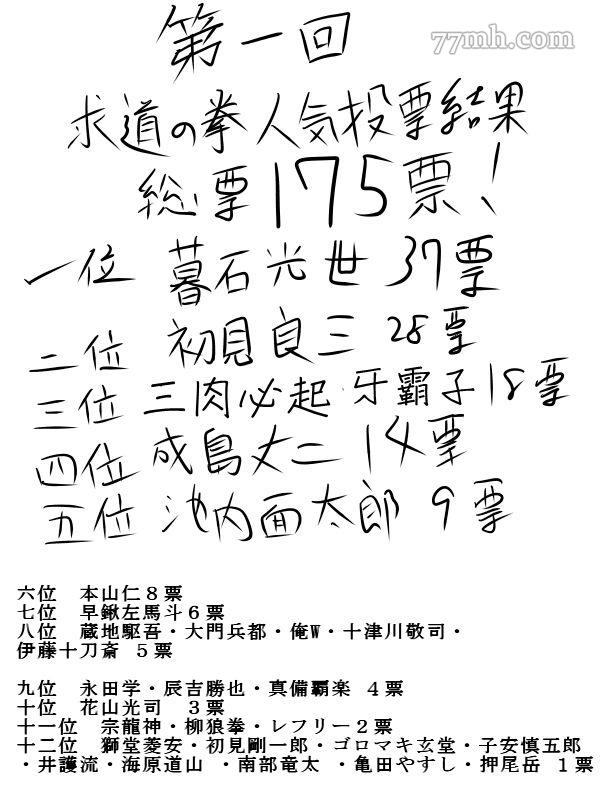 77mh.com
第一回
求道の拳人気投票結果
総票175票!
一位 暮石光世 37票
二位 初見良三 28票
三位 三肉必起・牙霸子 18票
四位 成島丈二 14票
五位 池内面太郎 9票
六位 本山仁8票
七位 早鍬左馬斗6票
八位 蔵地駆吾・大門兵都・俺W・十津川敬司・
伊藤十刀斎 5票
九位 永田学・辰吉勝也・真備覇楽 4票
十位 花山光司 3票
十一位 宗龍神・柳狼拳・レフリー2票
十二位 獅堂菱安・初見剛一郎・ゴロマキ玄堂・子安慎五郎
・井護流・海原道山 ・南部竜太 ・亀田やすし・押尾岳 1票